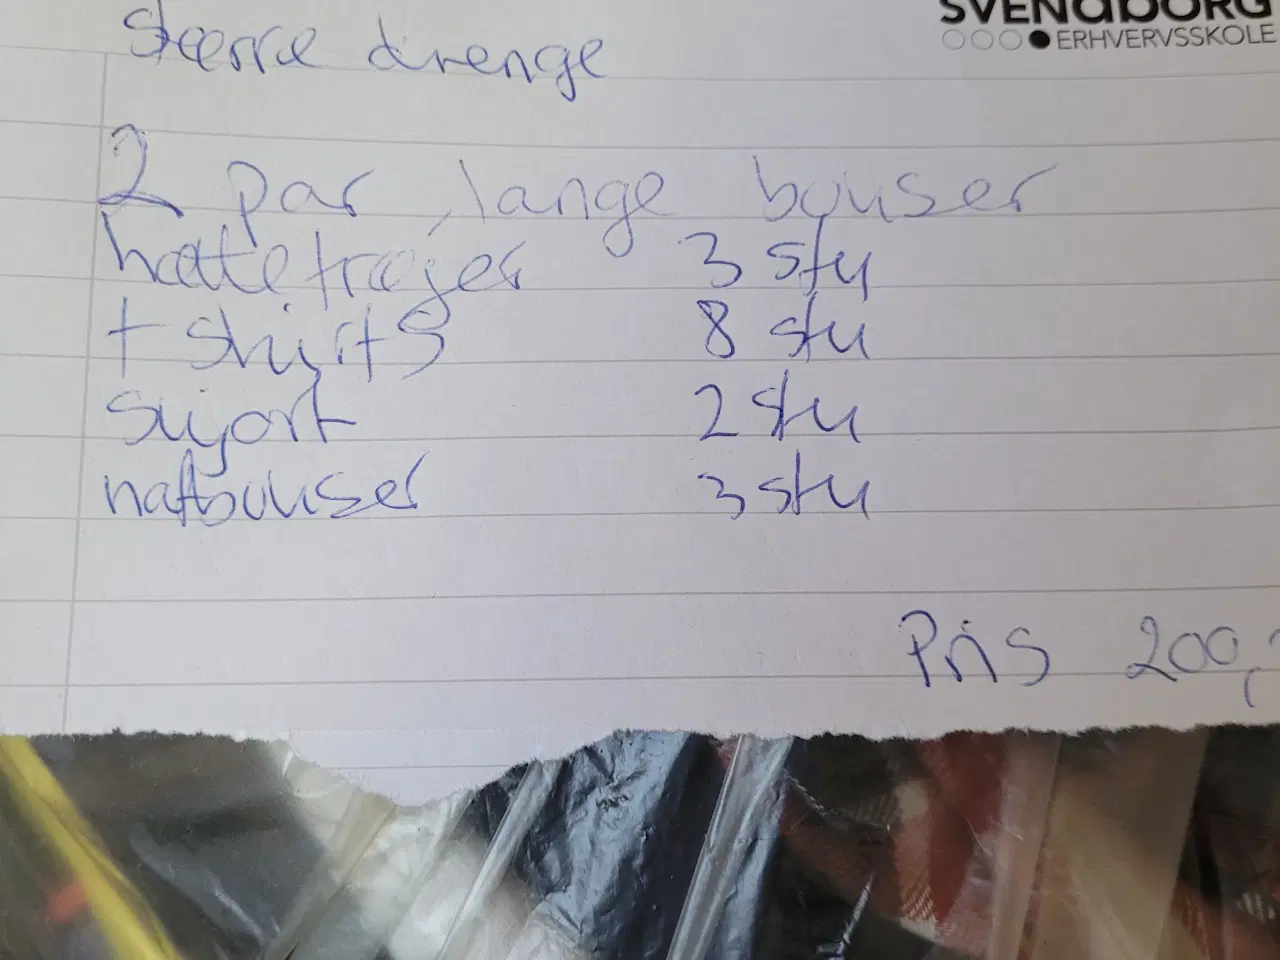 SVENDBORG
ERHVERVSSKOLE
Større drenge
2 par lange bouser
hættetrøjer 3 sty
t shirts 8 sty
sujort 2 sty
natbouser 3 sty
Pris 200,